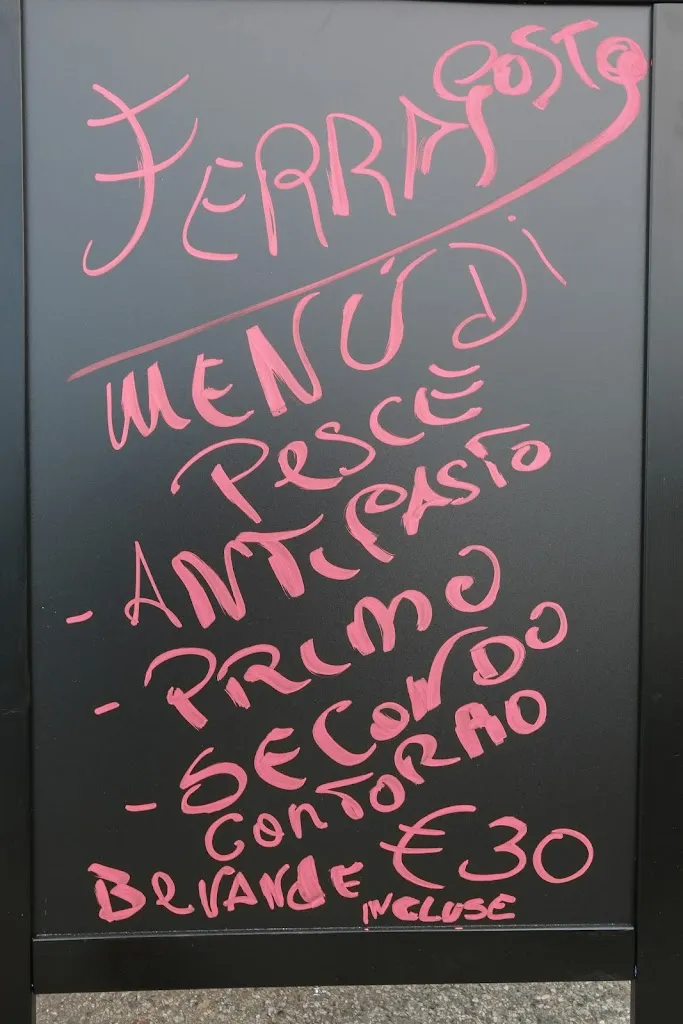 FERRAGOSTO
MENÙ DI
PESCE
- ANTIPASTO
- PRIMO
- SECONDO
CONTORNO
€30
BEVANDE
INCLUSE